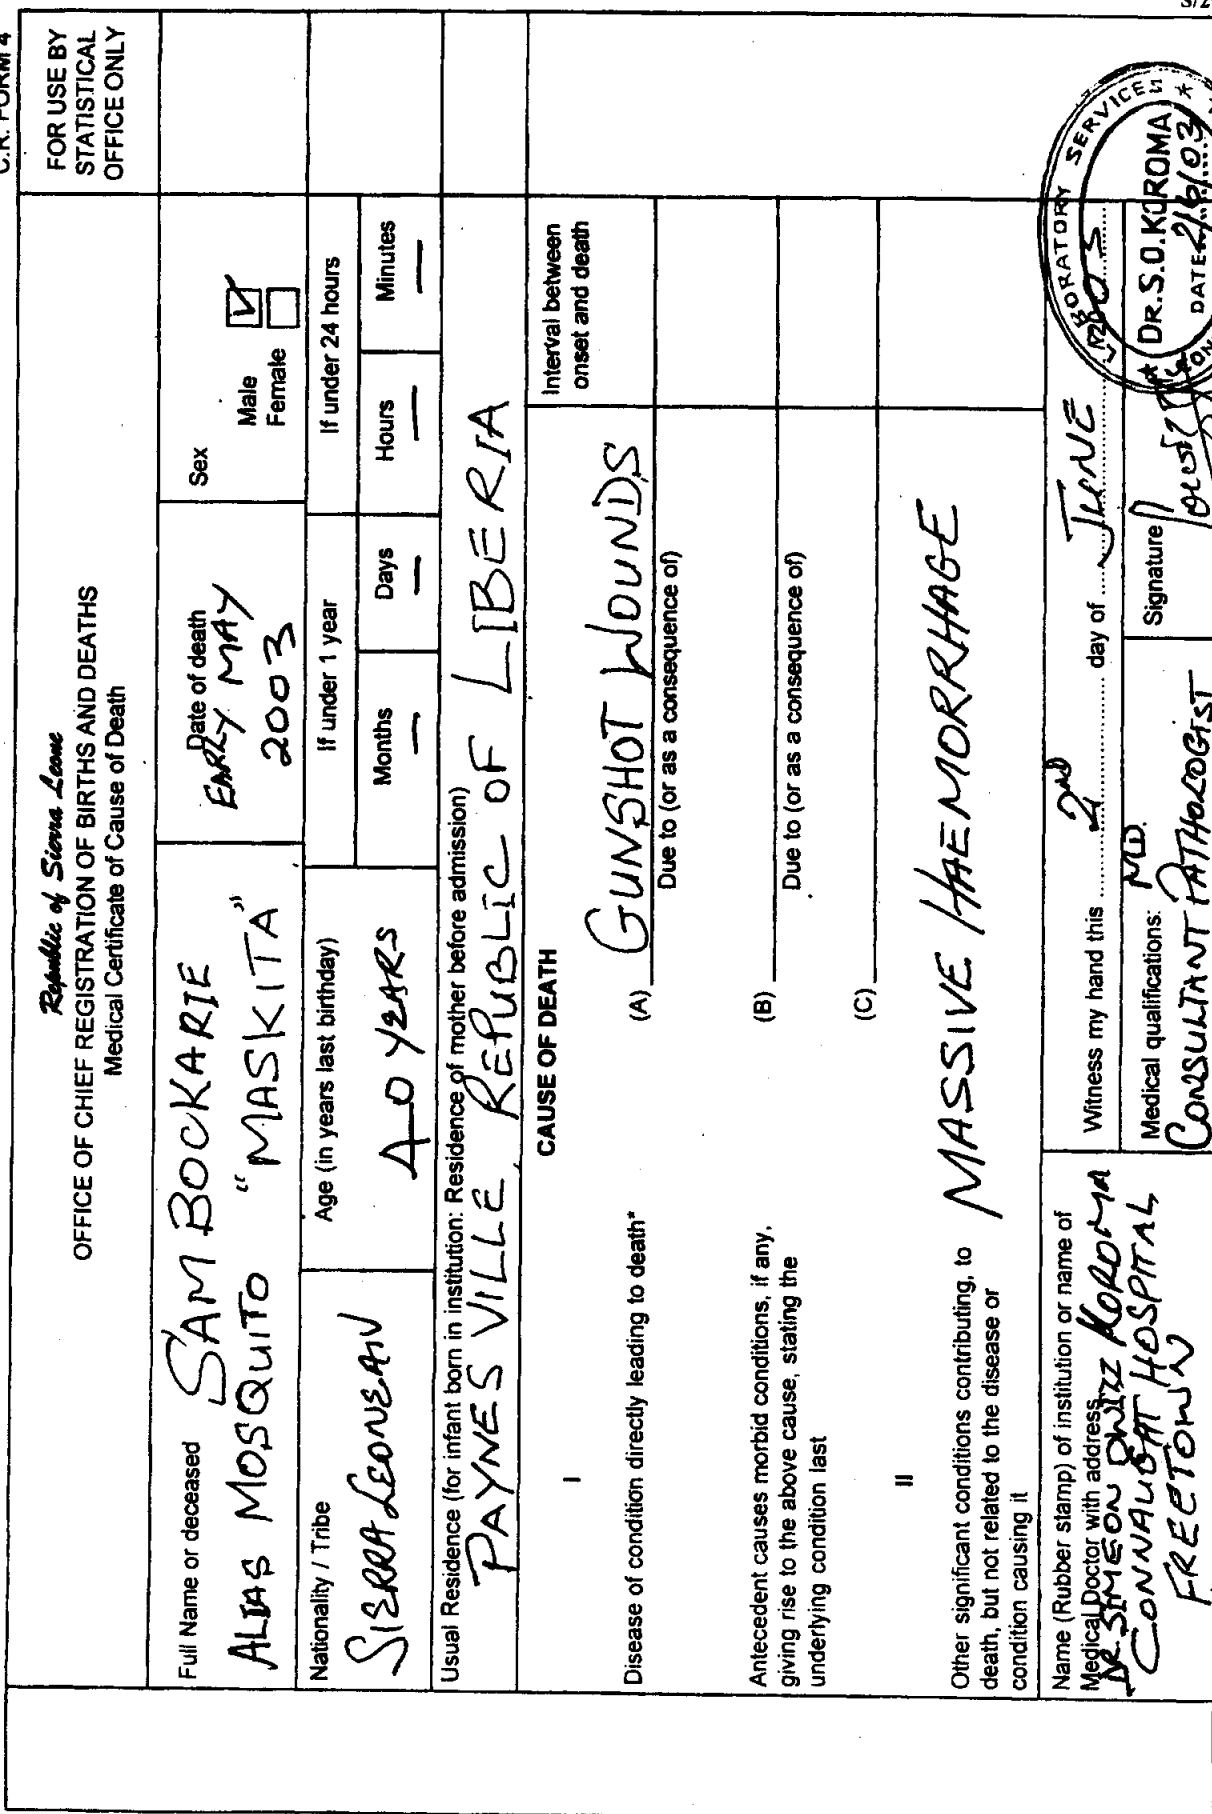 C.R. FORM 4
Republic of Sierra Leone
OFFICE OF CHIEF REGISTRATION OF BIRTHS AND DEATHS
Medical Certificate of Cause of Death
FOR USE BY
STATISTICAL
OFFICE ONLY
Full Name or deceased SAM BOCKARIE
ALIAS MOSQUITO "MASKITA"
Date of death
EARLY MAY
2003
Sex
Male ✓
Female
Nationality / Tribe
SIERRA LEONEAN
Age (in years last birthday)
40 YEARS
If under 1 year
Months Days
— —
If under 24 hours
Hours Minutes
— —
Usual Residence (for infant born in institution: Residence of mother before admission)
PAYNES VILLE REPUBLIC OF LIBERIA
CAUSE OF DEATH
Interval between
onset and death
I
Disease of condition directly leading to death*
(A) GUNSHOT WOUNDS
Due to (or as a consequence of)
Antecedent causes morbid conditions, if any,
giving rise to the above cause, stating the
underlying condition last
(B)
Due to (or as a consequence of)
(C)
II
Other significant conditions contributing, to
death, but not related to the disease or
condition causing it
MASSIVE HAEMORRHAGE
Name (Rubber stamp) of institution or name of
Medical Doctor with address
DR. SIMEON KOROMA
CONNAUGHT HOSPITAL
FREETOWN
Witness my hand this 2ND day of JUNE 2003
Medical qualifications: M.D.
CONSULTANT PATHOLOGIST
Signature
LABORATORY SERVICES
DR. S.O. KOROMA
DATE 2/6/03